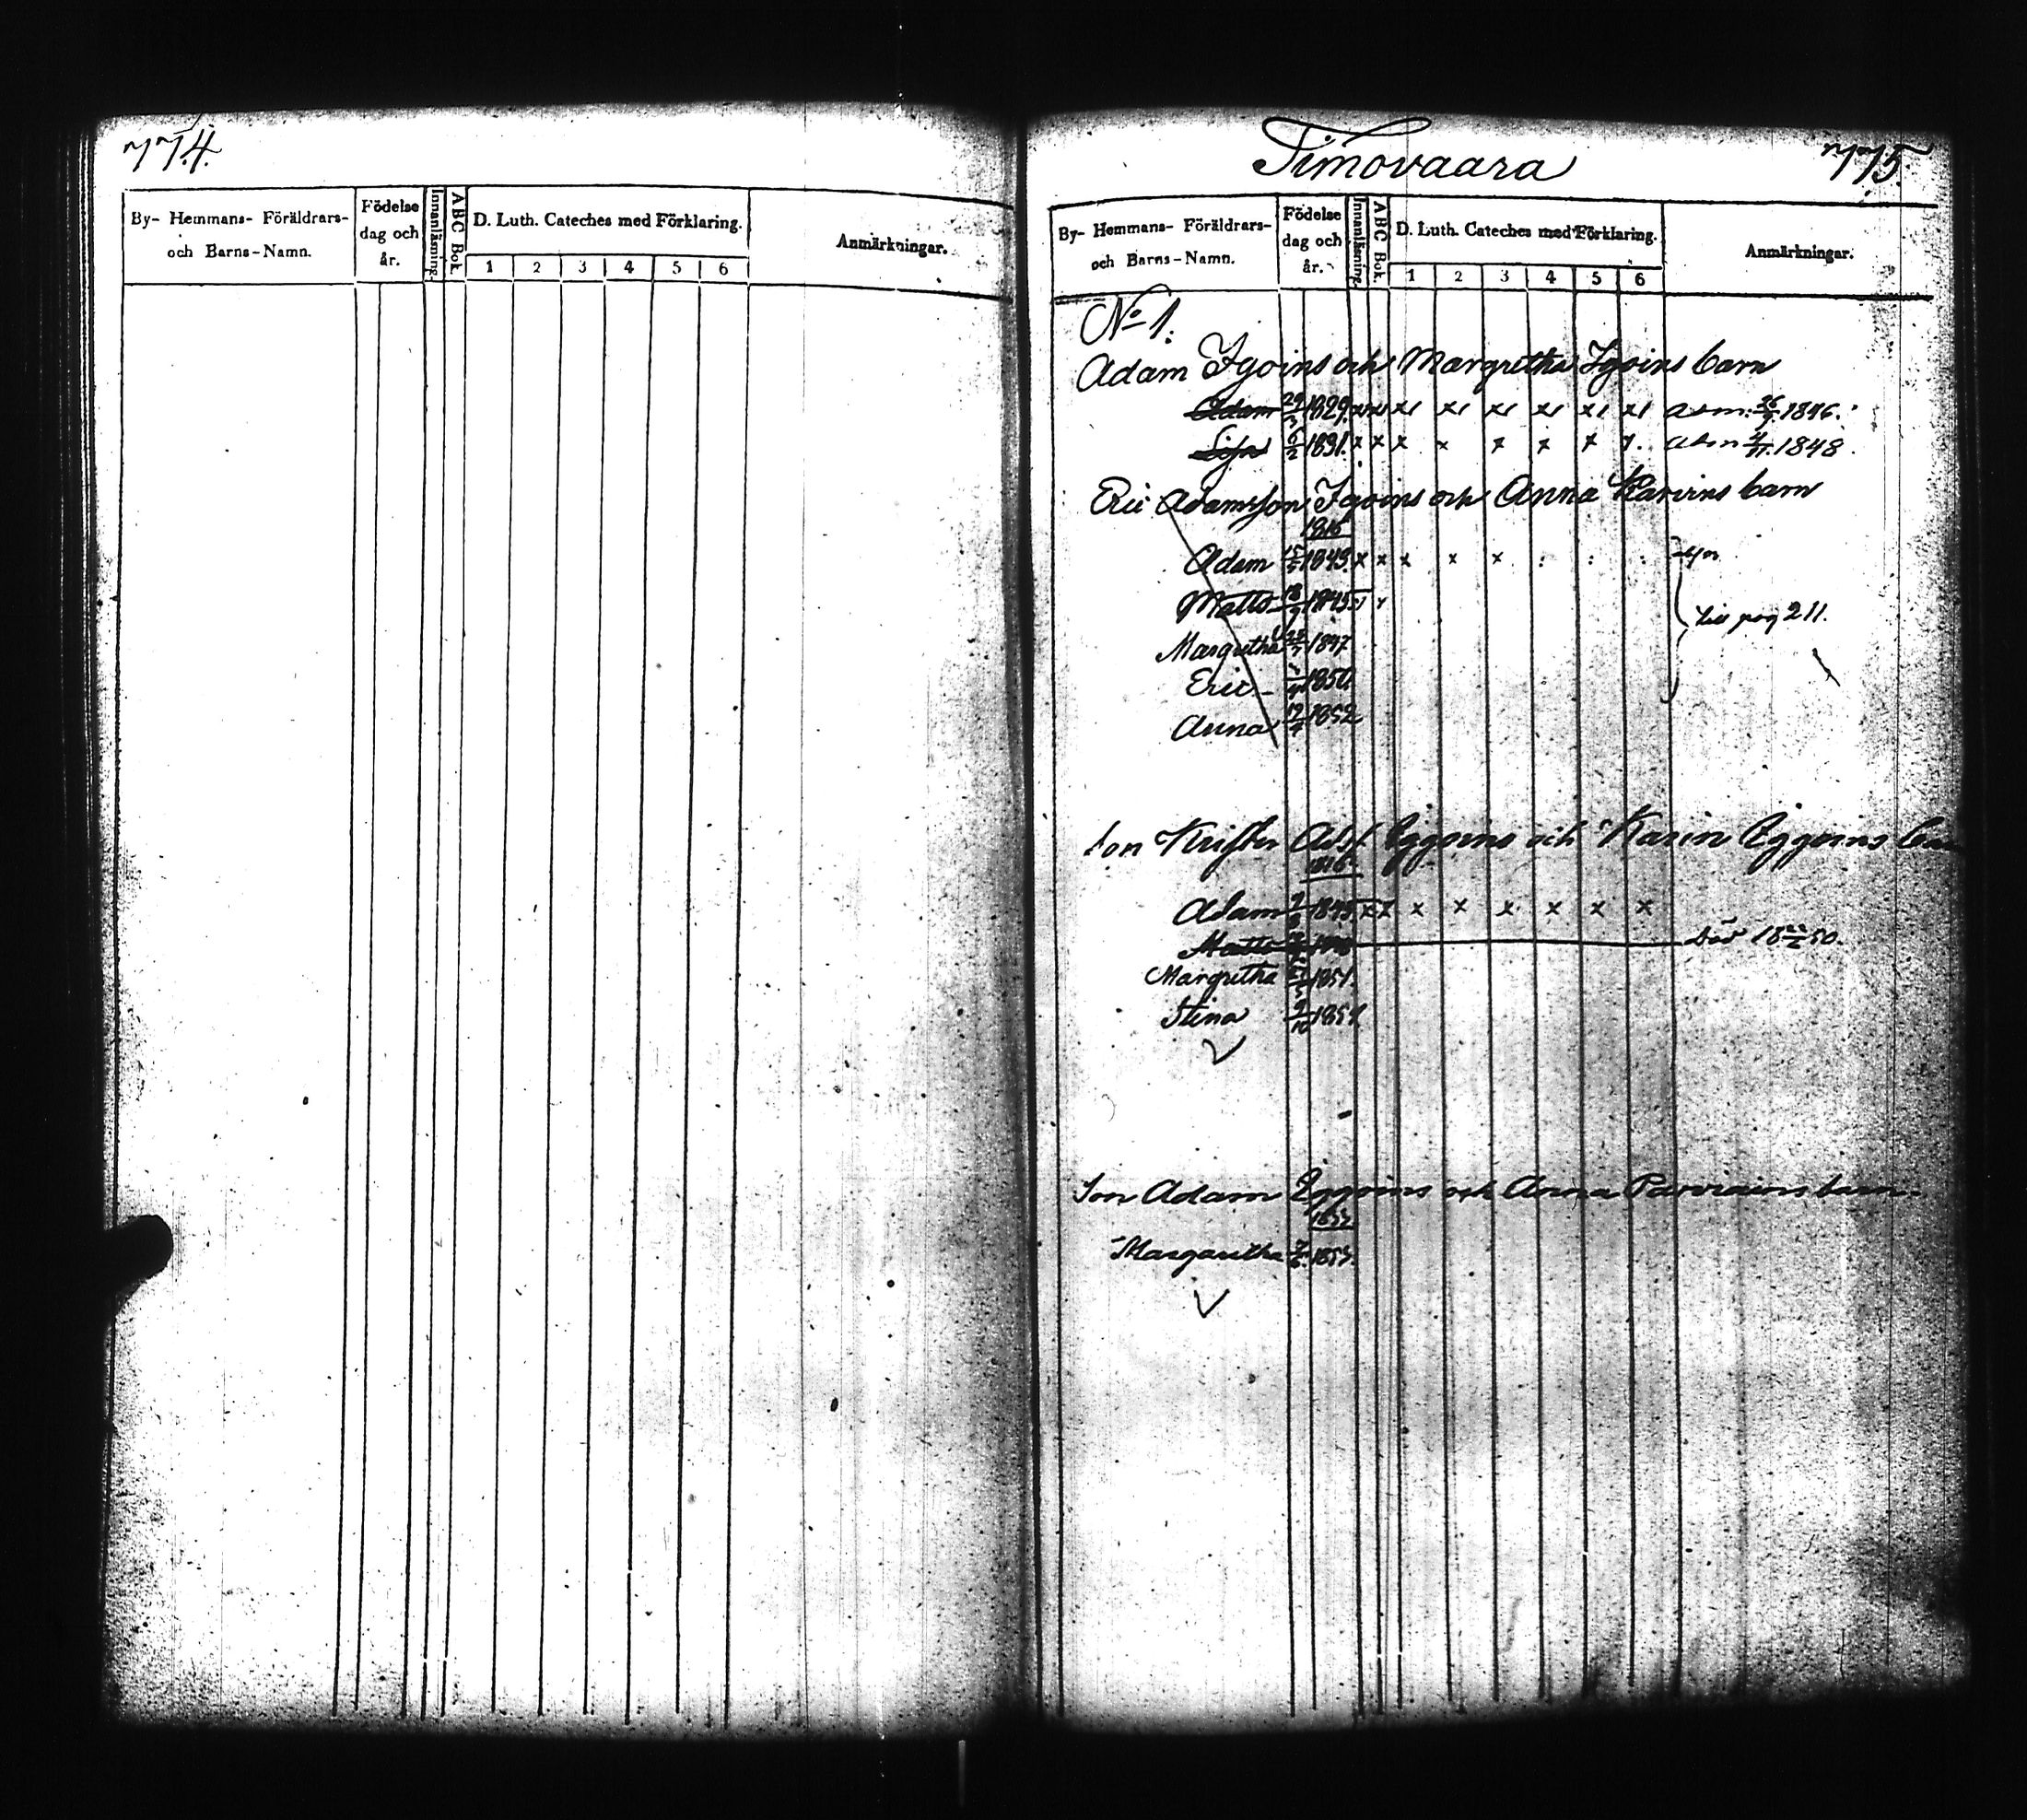 774.
By- Hemmans- Föräldrars- och Barns-Namn.
Födelse dag och år.
Innanläsning.
ABC Bok.
D. Luth. Cateches med Förklaring.
1 2 3 4 5 6
Anmärkningar.
Timovaara 775.
By- Hemmans- Föräldrars- och Barns-Namn.
Födelse dag och år.
Innanläsning.
ABC Bok.
D. Luth. Cateches med Förklaring.
1 2 3 4 5 6
Anmärkningar.
No 1.
Adam Igoins och Margretha Igoins barn
Adam 1829. adm. 1846.
Lisa 6/2 1831. x x x x x x x x adm 1848.
Eric Adamsson Igoins och Anna barn
1816
Adam 1843. x x x x x
Matts 1845
till pag 211.
Margretha 1847
Eric 1850.
Anna 1852
Son Krister Adsf. Eggoins och Karin Eggoins
1816
Adam 1845 x x x x x x x x
Matts död 50.
Margretha 1851.
Stina 9/10
Son Adam Eggoins och Anna barn.
Margaretha